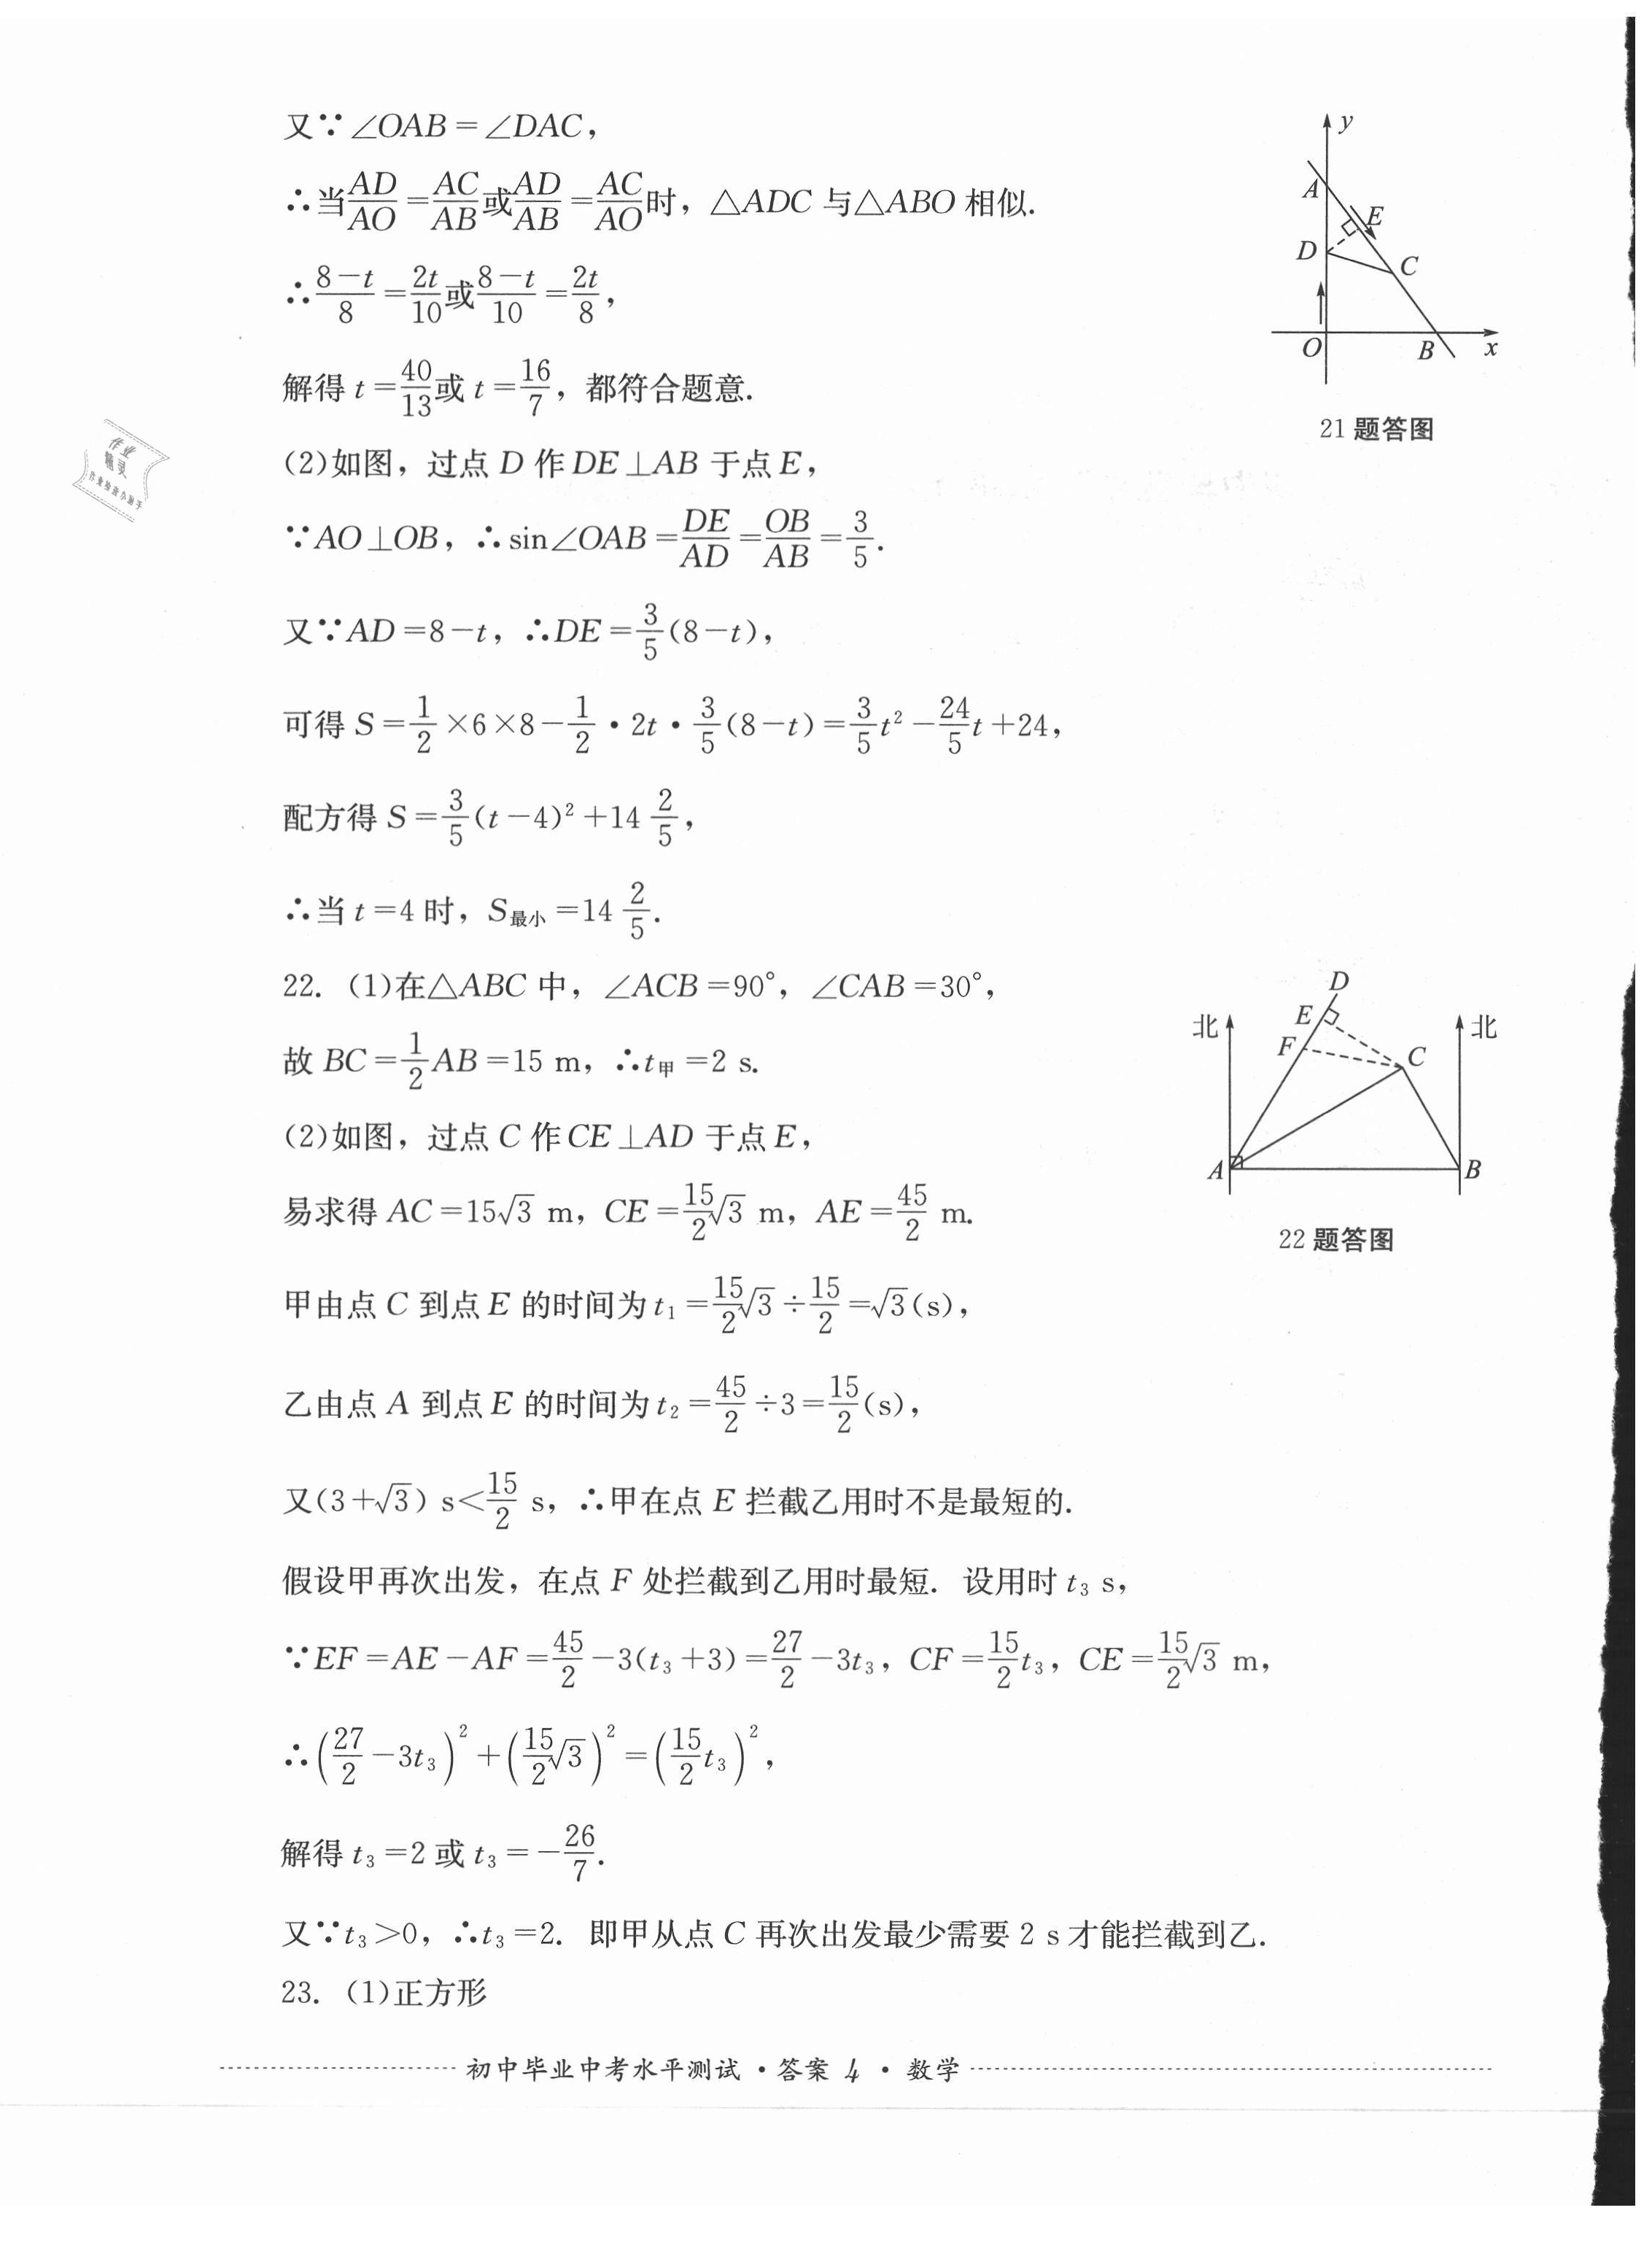 又∵∠OAB=∠DAC，
∴当AD/AO=AC/AB或AD/AB=AC/AO时，△ADC与△ABO相似.
∴(8-t)/8=2t/10或(8-t)/10=2t/8，
解得t=40/13或t=16/7，都符合题意.
(2)如图，过点D作DE⊥AB于点E，
∵AO⊥OB，∴sin∠OAB=DE/AD=OB/AB=3/5.
又∵AD=8-t，∴DE=3/5(8-t)，
可得S=1/2×6×8-1/2·2t·3/5(8-t)=3/5t²-24/5t+24，
配方得S=3/5(t-4)²+14 2/5，
∴当t=4时，S最小=14 2/5.
y
A
E
D
C
O
B
x
21题答图
22. (1)在△ABC中，∠ACB=90°，∠CAB=30°，
故BC=1/2AB=15 m，∴t甲=2 s.
(2)如图，过点C作CE⊥AD于点E，
易求得AC=15√3 m，CE=15/2√3 m，AE=45/2 m.
甲由点C到点E的时间为t₁=15/2√3÷15/2=√3(s)，
乙由点A到点E的时间为t₂=45/2÷3=15/2(s)，
又(3+√3) s<15/2 s，∴甲在点E拦截乙用时不是最短的.
假设甲再次出发，在点F处拦截到乙用时最短. 设用时t₃ s，
∵EF=AE-AF=45/2-3(t₃+3)=27/2-3t₃，CF=15/2t₃，CE=15/2√3 m，
∴(27/2-3t₃)²+(15/2√3)²=(15/2t₃)²，
解得t₃=2或t₃=-26/7.
又∵t₃>0，∴t₃=2. 即甲从点C再次出发最少需要2 s才能拦截到乙.
D
北
E
北
F
C
A
B
22题答图
23. (1)正方形
初中毕业中考水平测试·答案4·数学
作业
精灵